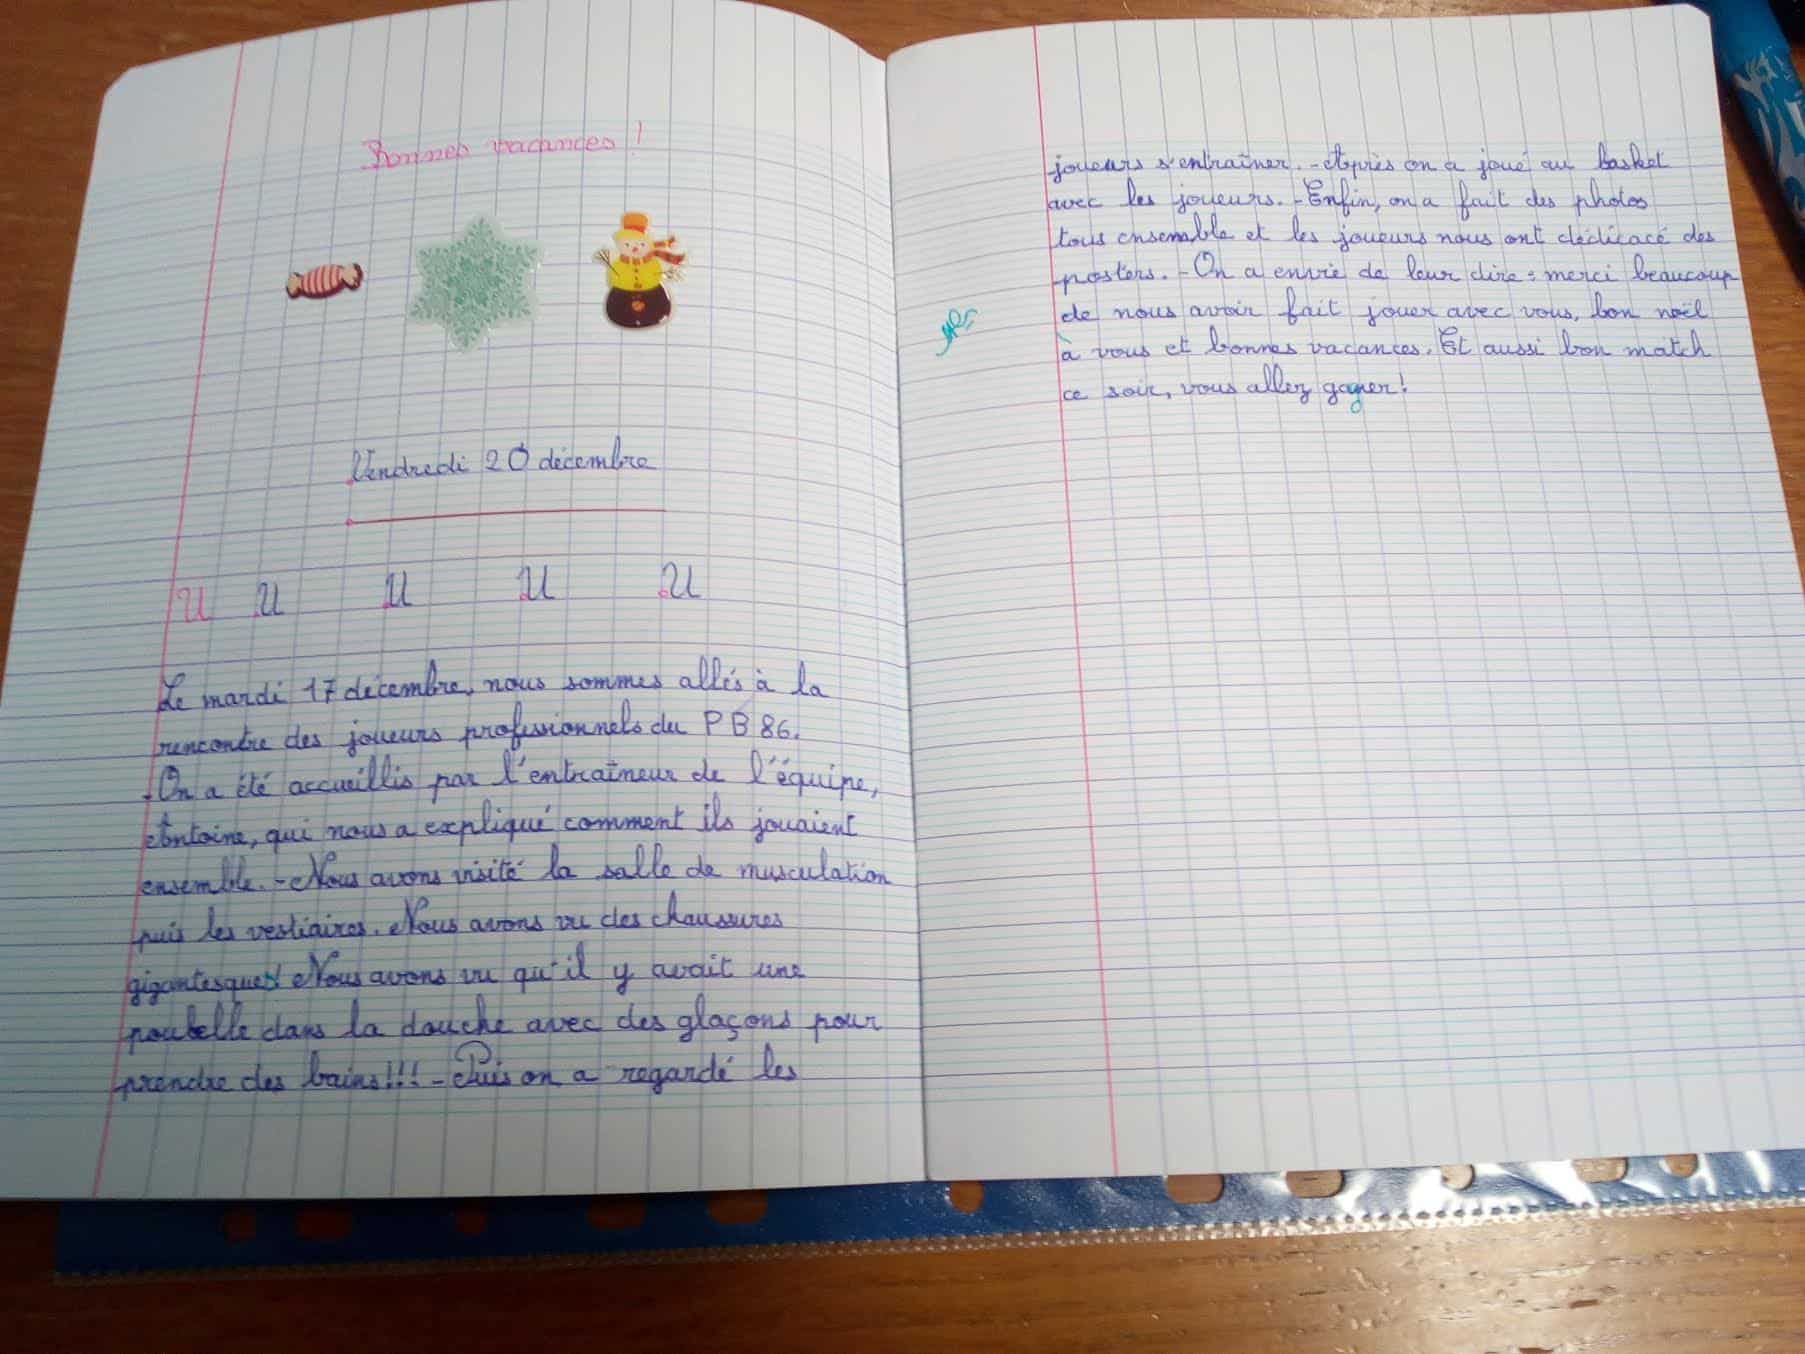 Bonnes vacances !
Vendredi 20 décembre
U U U U U
Le mardi 17 décembre, nous sommes allés à la
rencontre des joueurs professionnels du PB 86.
On a été accueillis par l'entraîneur de l'équipe,
Antoine, qui nous a expliqué comment ils jouaient
ensemble. - Nous avons visité la salle de musculation
puis les vestiaires. Nous avons vu des chaussures
gigantesques! Nous avons vu qu'il y avait une
poubelle dans la douche avec des glaçons pour
prendre des bains!!! - Puis on a regardé les
joueurs s'entraîner. - Après on a joué au basket
avec les joueurs. - Enfin, on a fait des photos
tous ensemble et les joueurs nous ont dédicacé des
posters. - On a envie de leur dire : merci beaucoup
de nous avoir fait jouer avec vous, bon noël
à vous et bonnes vacances. Et aussi bon match
ce soir, vous allez gagner!